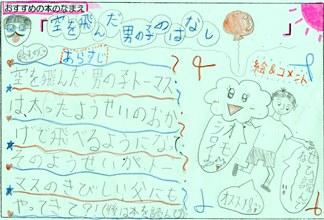 おすすめの本のなまえ
「空を飛んだ男の子のはなし」
あらすじ
絵&コメント
空を飛んだ男の子トーマス
は太ったようせいのおか
げで飛べるようになる
そのようせいが
マスのきびしい父にも
やってきて?!(後は本を読んでね
オモシロ
オススメ